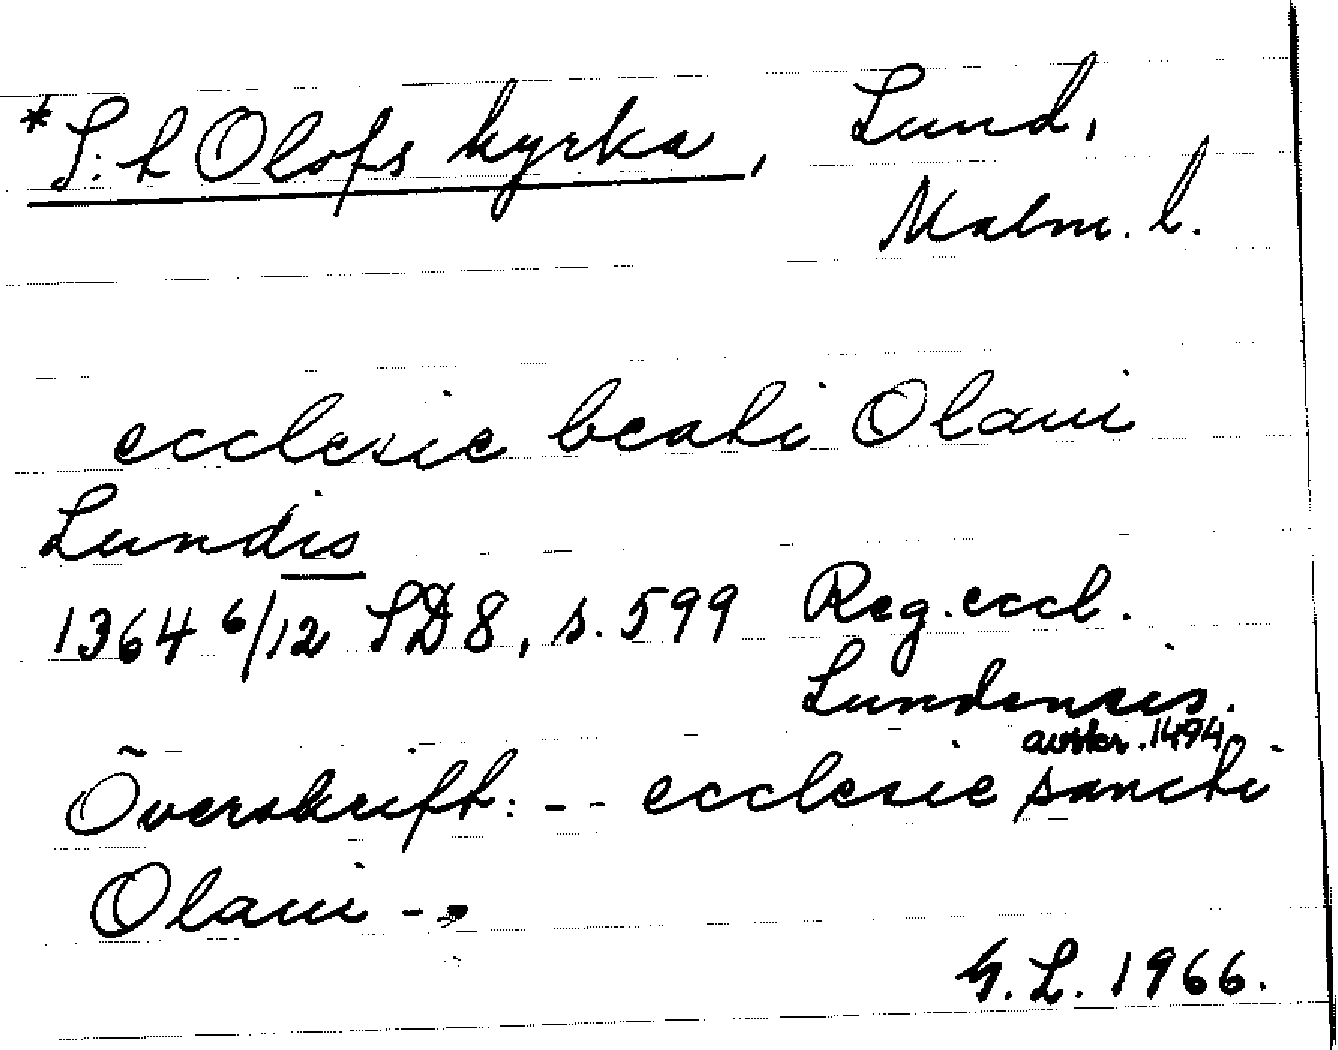 *S:t Olofs kyrka, Lund,
Malm. l.
ecclesie beati Olaui
Lundis
1364 6/12 SD 8, s. 599 Reg. eccl.
Lundensis.
avskr. 1494
Överskrift: -- ecclesie sancti
Olaui --
G. L. 1966.